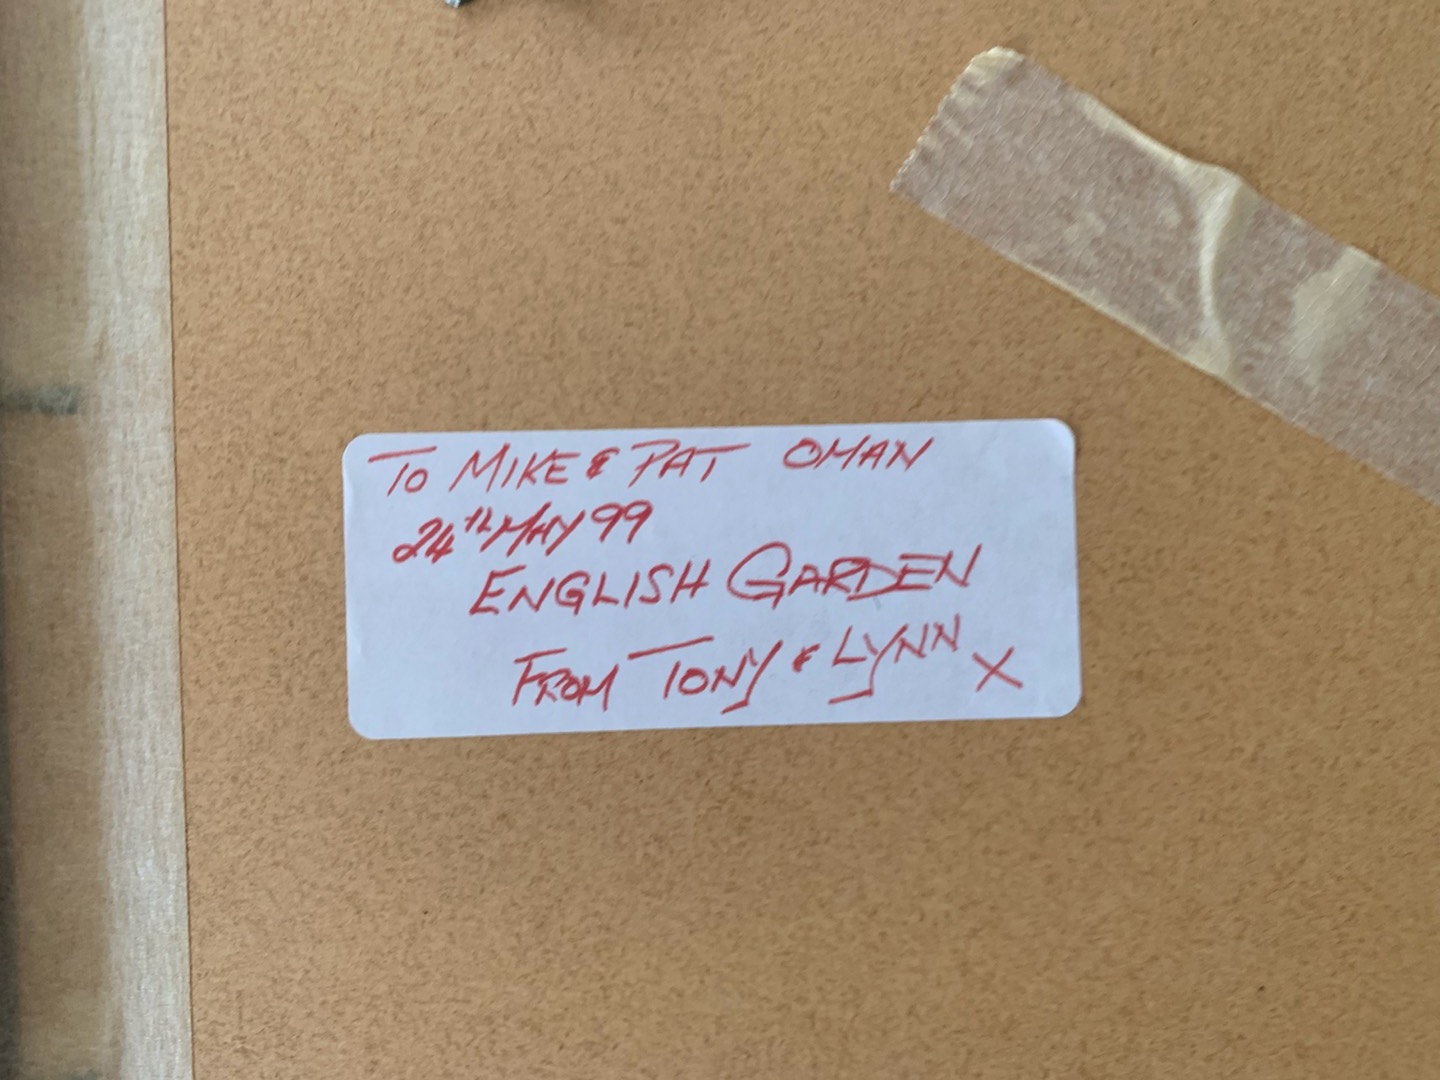 TO MIKE & PAT OMAN
24th MAY 99
ENGLISH GARDEN
FROM TONY & LYNN X